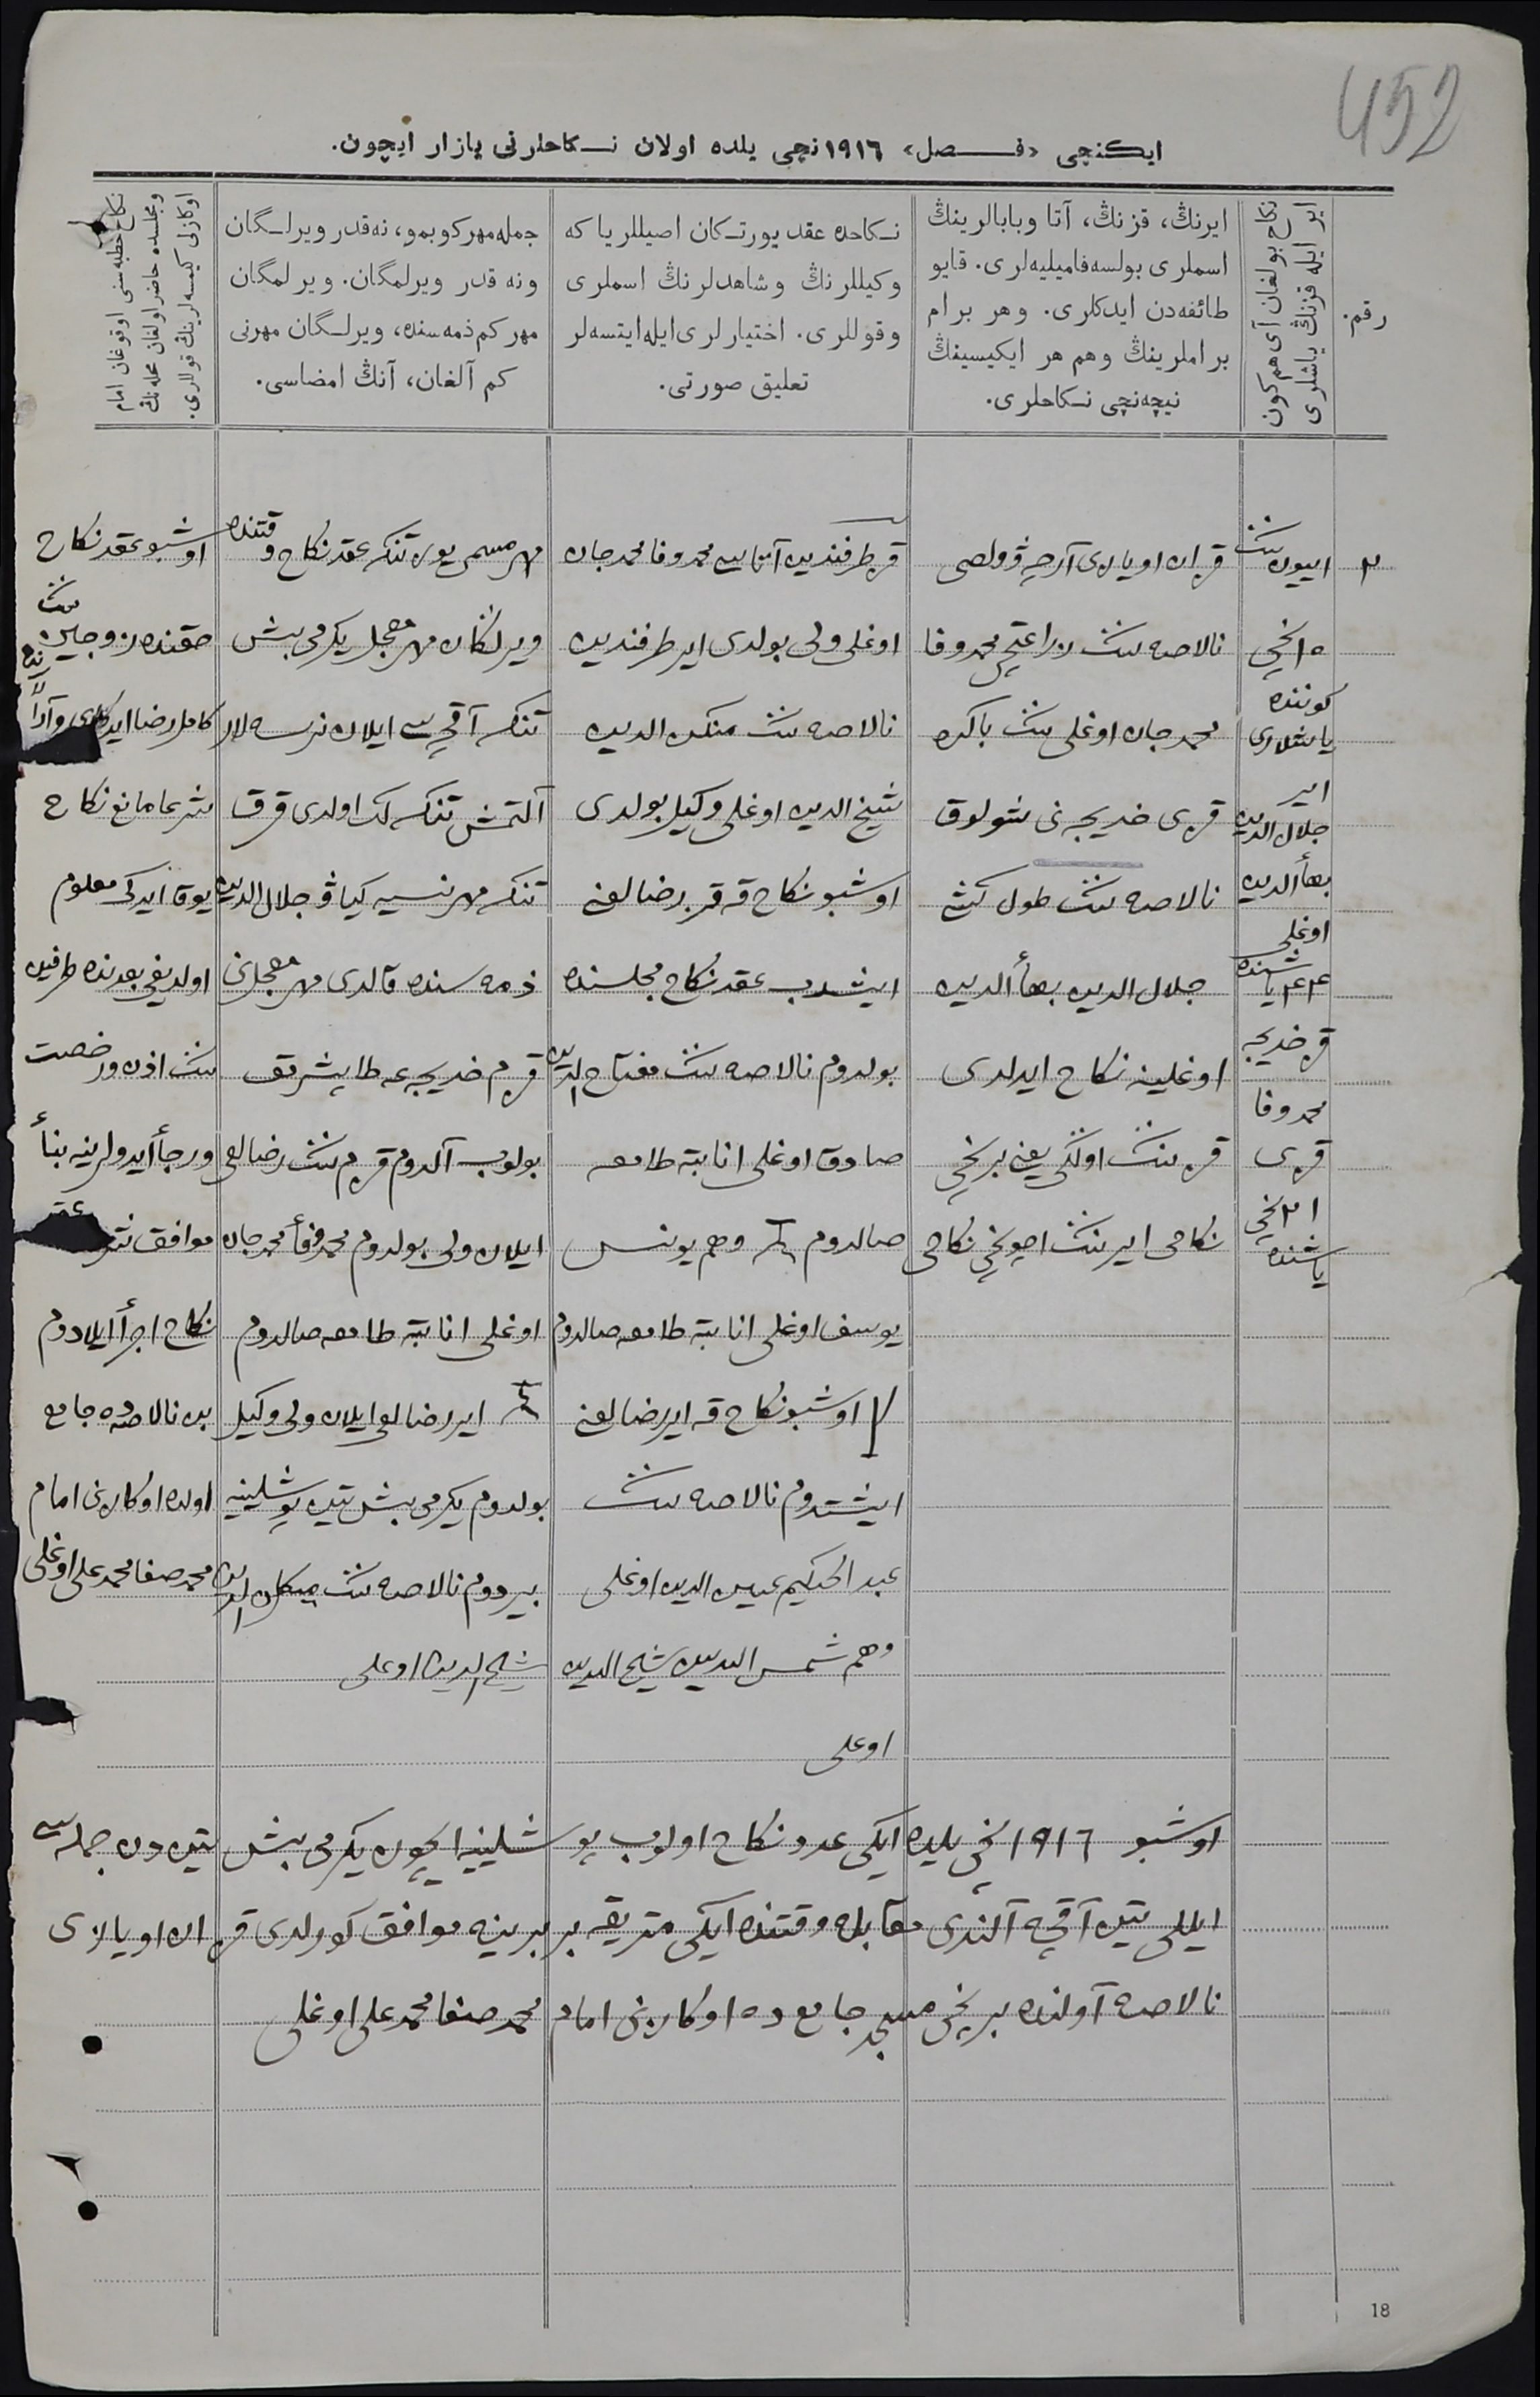 452
ایکنچی «فصل» ۱۹۱٦نچی یلده اولان نکاحلرنی یازار ایچون.
رقم.
نکاح بولغان آی هم کون
ایر ایله قزنڭ یاشلری
ایرنڭ، قزنڭ، آتا وبابالرینڭ
اسملری بولسه فامیلیه‌لری. قایو
طائفه‌دن ایدکلری. وهر برام
براملرینڭ وهم هر ایکیسینڭ
نیچه‌نچی نکاحلری.
نکاحده عقد یورتکان اصیللر یا که
وکیللرنڭ وشاهدلرنڭ اسملری
وقوللری. اختیارلری ایله ایتسه‌لر
تعلیق صورتی.
جمله مهر کوبمو، نه‌قدر ویرلگان
ونه قدر ویرلمگان. ویرلمگان
مهر کم ذمه سنده، ویرلگان مهرنی
کم آلغان، آنڭ امضاسی.
نکاح خطبه‌سنی اوقوغان امام
ومجلسده حاضر اولغان محله‌نڭ
اوکازلی کیمسه‌لرینڭ قوللری.
۲
اییون ننڭ
۱۵نچی
کوننده
یاشلاری
ایر
جلال الدین
بهأ الدین
اوغلی
یاشنده
قز خدیجه
محمدوفا
قزی
۲۱نچی
یاشنده
قزان اویازی آرچه ڤولصی
نالاصه ننڭ محمدوفا
محمدجان اوغلی ننڭ باکره
قزی خدیجه نی شولوق
نالاصه ننڭ طول کشی
جلال الدین بهأ الدین
اوغلینه نکاح ایدلدی
قزننڭ اولگی یعنی برنچی
نکاحی ایرننڭ اچونچی نکاحی
قز طرفندین آتاسی محمدوفا محمدجان
اوغلی ولی بولدی ایر طرفندین
نالاصه ننڭ منکن الدین
شیخ الدین اوغلی وکیل بولدی
اوشبو نکاح قه قز رضالغی
ایشدب عقد نکاح مجلسنده
بولدوم نالاصه ننڭ مفتاح الدین
صادق اوغلی انابته طامعه
صالدوم وهم یونس
یوسف اوغلی انابته طامعه صالدوم
اوشبو نکاح قه ایر رضالغی
ایشتدوم نالاصه ننڭ
عبد الحکیم عین الدین اوغلی
وهم شمس الدین شیخ الدین
اوغلی
مهر مسمی یوز تنکه عقد نکاح وقتنده
ویرلکان مهر معجل یکرمی بش
تنکه آقچه سی ایلان نرسه لار
آلتمش تنکه لک اولدی قرق
تنکه مهر نسیه کیاو جلال الدین
ذمه سنده قالدی مهر معجلنی
قزم خدیجه غه طابشرمق
بولوب آلدوم قزم ننڭ رضالغی
ایلان ولی بولدوم محمدوفأ محمدجان
اوغلی انابته طامعه صالدوم
ایر رضالغی ایلان ولی وکیل
بولدوم یکرمی بش تین پوشلینه
بیردوم نالاصه ننڭ منکن الدین
شیخ الدین اوغلی
اوشبو عقد نکاح
حقنده زوجین ننڭ
کامل رضا ایدکلری وآرا
شرعا مانع نکاح
یوق ایدکی معلوم
اولدیغی بعدنده طرفین
ننڭ اذن ورخصت
ورجأ ایدولرینه بنأ
موافق
نکاح اجرأ ایلادوم
بن نالاصه ده جامع
اولده اوکازنی امام
محمدصفا محمدعلی اوغلی
اوشبو ۱۹۱٦ نچی یلده ایکی عدد نکاح اولوب پوشلینه ایچون یکرمی بش تین دن جمله سی
ایللی تین آقچه آلندی مقابله وقتنده ایکی متریقه بر برینه موافق کورلدی قزان اویازی
نالاصه آولنده برنچی مسجد جامع ده اوکازنی امام محمدصفا محمدعلی اوغلی
18